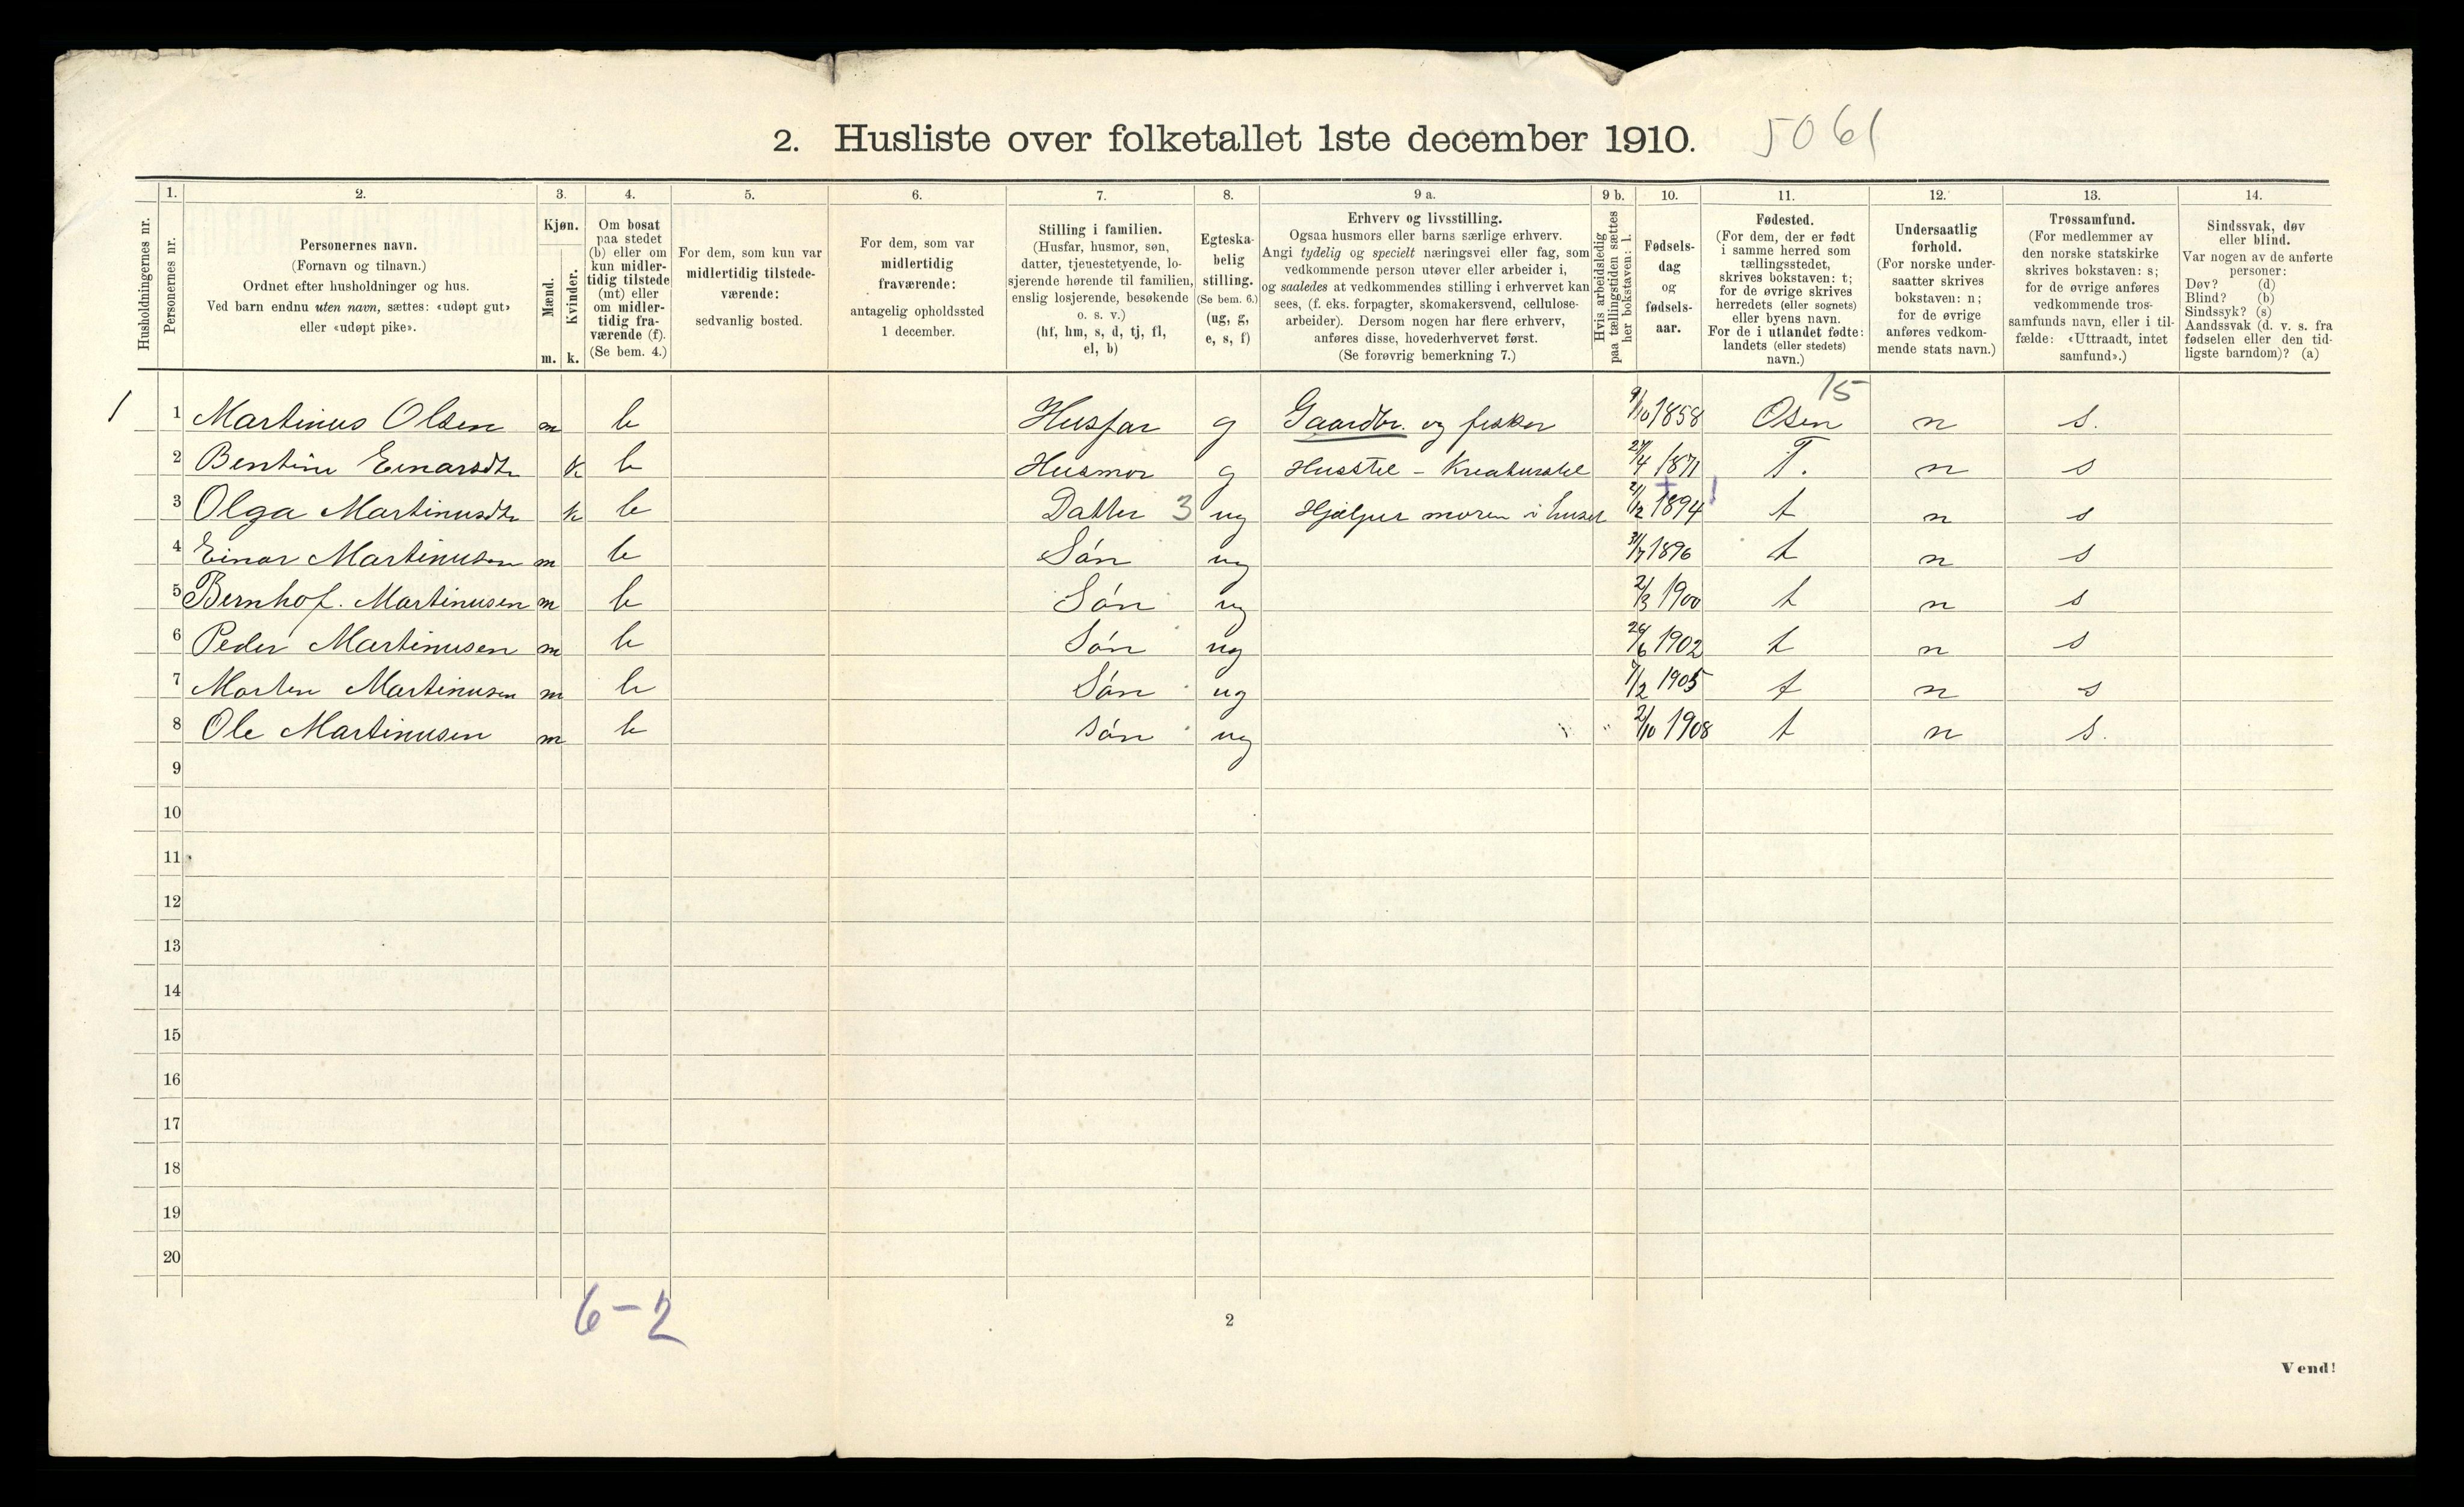 2. Husliste over folketallet 1ste december 1910. 5061
1. 2. 3. 4. 5. 6. 7. 8. 9 a. 9 b. 10. 11. 12. 13. 14.
Husholdningernes nr.
Personernes nr.
Personernes navn.
(Fornavn og tilnavn.)
Ordnet efter husholdninger og hus.
Ved barn endnu uten navn, sættes: «udøpt gut»
eller «udøpt pike».
Kjøn.
Mænd.
Kvinder.
m. k.
Om bosat
paa stedet
(b) eller om
kun midler-
tidig tilstede
(mt) eller
om midler-
tidig fra-
værende (f).
(Se bem. 4.)
For dem, som kun var
midlertidig tilstede-
værende:
sedvanlig bosted.
For dem, som var
midlertidig
fraværende:
antagelig opholdssted
1 december.
Stilling i familien.
(Husfar, husmor, søn,
datter, tjenestetyende, lo-
sjerende hørende til familien,
enslig losjerende, besøkende
o. s. v.)
(hf, hm, s, d, tj, fl,
el, b)
Egteska-
belig
stilling.
(Se bem. 6.)
(ug, g,
e, s, f)
Erhverv og livsstilling.
Ogsaa husmors eller barns særlige erhverv.
Angi tydelig og specielt næringsvei eller fag, som
vedkommende person utøver eller arbeider i,
og saaledes at vedkommendes stilling i erhvervet kan
sees, (f. eks. forpagter, skomakersvend, cellulose-
arbeider). Dersom nogen har flere erhverv,
anføres disse, hovederhvervet først.
(Se forøvrig bemerkning 7.)
Hvis arbeidsledig
paa tællingstiden sættes
her bokstaven: l.
Fødsels-
dag
og
fødsels-
aar.
Fødested.
(For dem, der er født
i samme herred som
tællingsstedet,
skrives bokstaven: t;
for de øvrige skrives
herredets (eller sognets)
eller byens navn.
For de i utlandet fødte:
landets (eller stedets)
navn.)
Undersaatlig
forhold.
(For norske under-
saatter skrives
bokstaven: n;
for de øvrige
anføres vedkom-
mende stats navn.)
Trossamfund.
(For medlemmer av
den norske statskirke
skrives bokstaven: s;
for de øvrige anføres
vedkommende tros-
samfunds navn, eller i til-
fælde: «Uttraadt, intet
samfund».)
Sindssvak, døv
eller blind.
Var nogen av de anførte
personer:
Døv? (d)
Blind? (b)
Sindssyk? (s)
Aandssvak (d. v. s. fra
fødselen eller den tid-
ligste barndom)? (a)
15
1 1 Martinus Olsen m b Husfar g Gaardbr. og fisker 9/10 1858 Osen n s.
2 Bentine Einarsdtr k b Husmor g Husstel - Kreaturstel 27/4 1871 T. n s
3 Olga Martinusdtr k b Datter 3 ug Hjælper moren i huset 2/12 1894 t n s
4 Einar Martinusen m b Søn ug 31/7 1896 t n s
5 Bernhof. Martinusen m b Søn ug 2/3 1900 t n s
6 Peder Martinusen m b Søn ug 26/6 1902 t n s
7 Morten Martinusen m b Søn ug 7/2 1905 t n s
8 Ole Martinusen m b Søn ug 2/10 1908 t n s.
9
10
11
12
13
14
15
16
17
18
19
20
6-2
2
Vend!